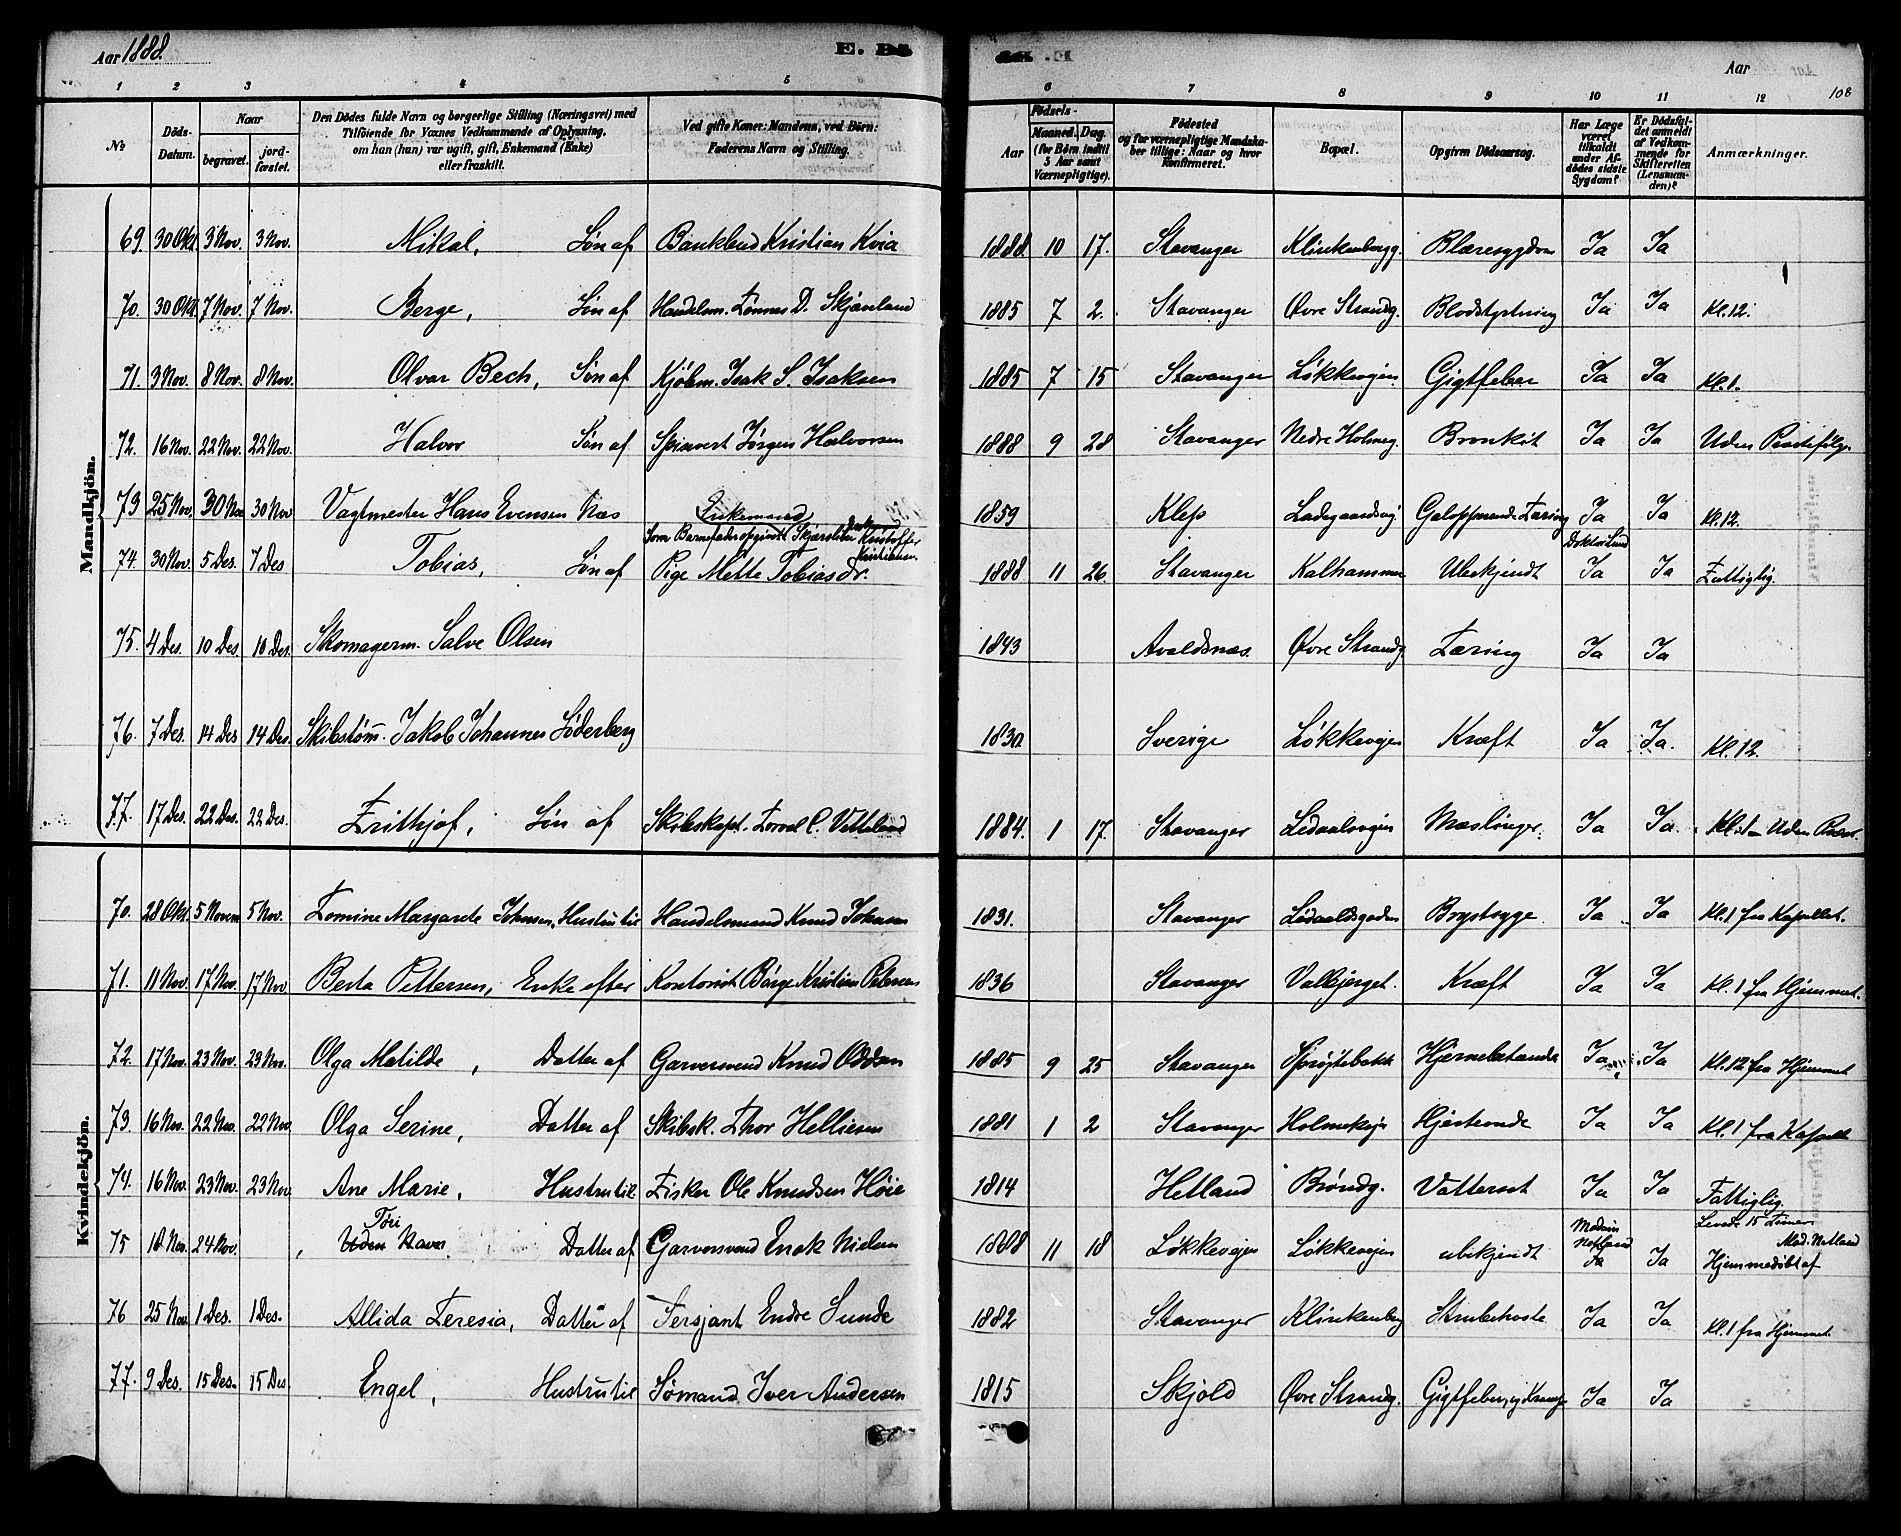 Aar 1888.
E. Ds
Aar
108
1 2 3 4 5 6 7 8 9 10 11 12
No
Döds-Datum.
Naar
begravet.
jord-fæstet.
Den Dödes fulde Navn og borgerlige Stilling (Næringsvei) med
Tilföiende for Voxnes Vedkommende af Oplysning,
om han (hun) var ugift, gift, Enkemand (Enke)
eller fraskilt.
Ved gifte Koner: Mandens, ved Börn:
Faderens Navn og Stilling.
Födsels-
Aar
Maaned. Dag.
(for Börn indtil
5 Aar samt
Værnepligtige).
Födested
og for værnepligtige Mandska-
ber tillige: Naar og hvor
Konfirmeret.
Bopæl.
Opgiven Dödsaarsag.
Har Læge
været
tilkaldt
under Af-
dödes sidste
Sygdom?
Er Dödsfal-
det anmeldt
af Vedkom-
mende for
Skifteretten
(Lensman-
den)?
Anmærkninger.
Mandkjön.
69. 30 Okt. 3 Nov. 3 Nov. Mikal, Søn af Kristian Kvia 1888. 10 17. Stavanger Klinkenbergg. Blæresygdom Ja Ja
70. 30 Okt. 7 Nov. 7 Nov. Berge, Søn af Handelsm. Tønnes D. Skjanland 1885 7 2. Stavanger Øvre Strandg. Blodstyrtning Ja Ja Kl. 12.
71. 3 Nov. 8 Nov. 8 Nov. Olvar Bech, Søn af Kjøbm. Isak S. Isaksen 1885 7 15 Stavanger Løkkevejen. Gigtfeber Ja Ja Kl. 1.
72. 16 Nov. 22 Nov. 22 Nov. Halvor Søn af Jørgen Halvorsen 1888 9 28 Stavanger Nedre Holmeg. Bronkit Ja Ja Uden
73 25 Nov. 30 Nov 30 Nov Vagtmester Hans Evensen Næs Enkemand 1859 Klep Ladegaardsvej. Galopperende Tæring Ja Ja Kl. 12.
Som Barnefader opgivet Kristoffer Kristiansen
Doktor Lund
74. 30 Nov. 5 Des. 7 Des Tobias, Søn af Pige Mette Tobiasdr. 1888 11 26. Stavanger Kalhammer Ubekjendt Ja Ja Fattiglig.
75. 4 Des. 10 Des 10 Des. Skomagerm. Salve Olsen 1843 Avaldsnæs. Øvre Strandg Tæring Ja Ja
76. 7 Des. 14 Des 14 Des. Skibstøm. Jakob Johannes Søderberg 1830 Sverige Løkkevejen Kræft Ja Ja. Kl. 12.
77. 17 Des. 22 Des. 22 Des. Frithjof, Søn af Skibskapt. C. 1884. 1 17. Stavanger Ledaalsvejen Mæslinger. Ja Ja. Kl. 1 - Uden
Kvindekjön.
70. 28 Okt. 5 Novem 5 Nov. Tomine Margarete Johnsen, Hustru til Handelsmand Knud Johnsen 1831. Stavanger Ledaalsgaden Brystsyge Ja Ja Kl. 1 fra Kapellet.
71. 11 Nov. 17 Nov. 17 Nov Berta Pettersen, Enke efter Kontorist Børge Kristian Petersen 1836 Stavanger Valbjerget. Kræft Ja Ja Kl. 1 fra Hjemmet.
72. 17 Nov. 23 Nov. 23 Nov. Olga Matilde, Datter af Garversvend Knud 1885 9 25 Stavanger Sprøjtebakk Hjernebetændelse Ja Ja Kl. 12 fra Hjemmet
73. 16 Nov. 22 Nov. 22 Nov. Olga Serine, Datter af Skibsk. Thor Helliesen 1881 1 2 Stavanger Holmekejn Hjerteonde Ja Ja Kl. 1 fra Kapellet
74. 16 Nov. 23 Nov. 23 Nov. Ane Marie, Hustru til Fisker Ole Knudsen Høie 1814 Hetland Brøndg. Vattersot Ja Ja Fattiglig
Tøri
75 18 Nov. 24 Nov. Uden Navn Datter af Garversvend Enok Nielsen 1888 11 18 Løkkevejen Løkkevejen ubekjendt Madam Netland Ja Ja Leved. 15 Timer Hjemmedøbt af Mad. Netland
76 25 Nov. 1 Des. 1 Des. Allida Teresia, Datter af Sersjant Endre Sunde 1882 Stavanger Klinkenberg Strubehoste Ja Ja Kl. 1 fra Hjemmet
77. 9 Des. 15 Des. 15 Des Engel, Hustru til Sømand Iver Andersen 1815 Skjold Øvre Strandg. Gigtfeber, Ja Ja